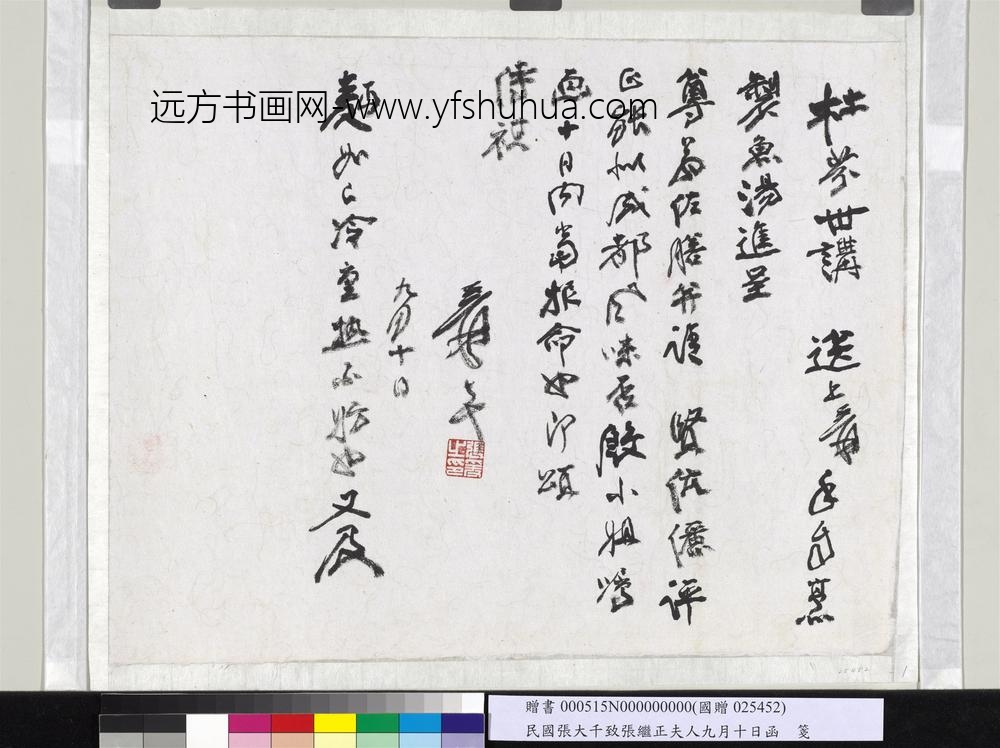 杜芬世講 送上爰手自烹
製魚湯進呈
尊翁佐膳并請 賢伉儷評
正能似成都風味否殷小姐囑
畫十日內當報命也即頌
侍祺
爰
九月十日
麵如已冷重熱不妨也又及
远方书画网-www.yfshuhua.com
贈書 000515N000000000(國贈 025452)
民國張大千致張繼正夫人九月十日函 箋